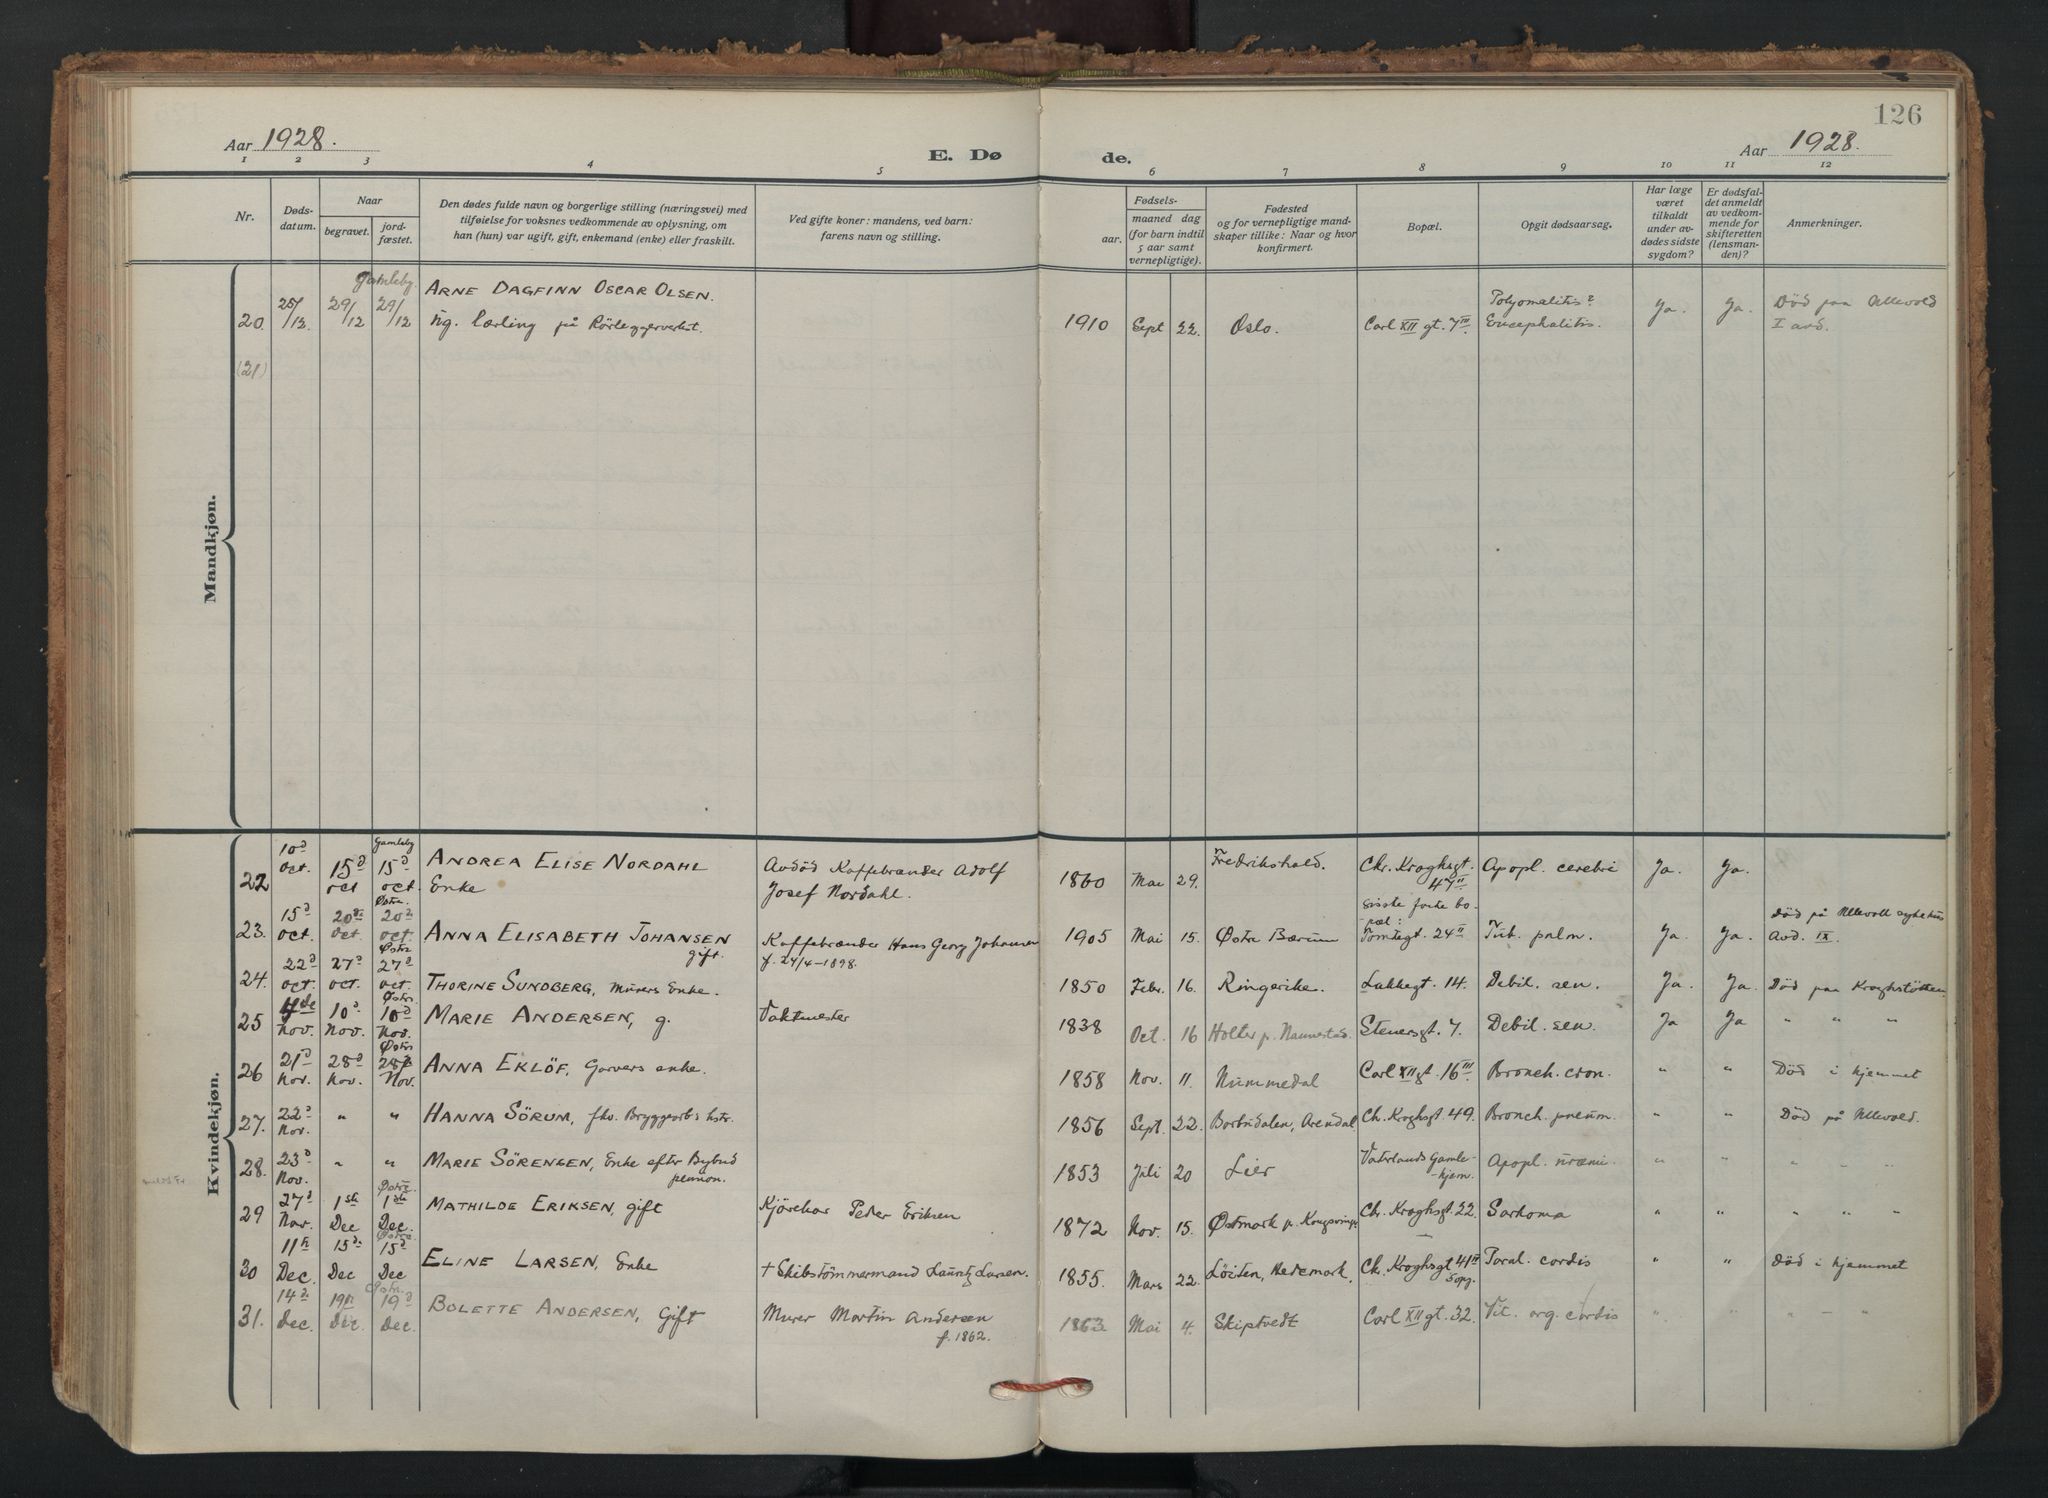 126
Aar 1928.
E. Dø
de.
Aar 1928.
1 2 3 4 5 6 7 8 9 10 11 12
Nr.
Døds-
datum.
Naar
begravet.
jord-
fæstet.
Den dødes fulde navn og borgerlige stilling (næringsvei) med
tilføielse for voksnes vedkommende av oplysning, om
han (hun) var ugift, gift, enkemand (enke) eller fraskilt.
Ved gifte koner: mandens, ved barn:
farens navn og stilling.
Fødsels-
aar.
maaned dag
(for barn indtil
5 aar samt
vernepligtige).
Fødested
og for vernepligtige mand-
skaper tillike: Naar og hvor
konfirmert.
Bopæl.
Opgit dødsaarsag.
Har læge
været
tilkaldt
under av-
dødes sidste
sygdom?
Er dødsfal-
det anmeldt
av vedkom-
mende for
skifteretten
(lensman-
den)?
Anmerkninger.
Mandkjøn.
Gamleby
ARNE DAGFINN OSCAR OLSEN. Polyomelitis? Død paa Ullevold
20. 25/12. 29/12 29/12 ug. Lærling på Rörleggerverkst. 1910 Sept 22. Oslo. Carl XII gt. 7III. Encephalitis. Ja. Ja. I avd.
(21)
Kvindekjøn.
Gamleby
22 10d oct. 15d oct 15d oct. ANDREA ELISE NORDAHL Avdöd Kaffebrænder Adolf 1860 Mai 29. Fredrikshald. Chr. Kroghsgt. Apopl. cerebri Ja. Ja.
Enke Josef Nordahl. 47II
Østre siste faste bo-
pæl: Død på Ullevoll sykehus
23. 15d oct. 20de oct. 20d oct. ANNA ELISABETH JOHANSEN Kaffebrænder Hans Georg Johansen 1905 Mai 15. Østre Bærum Tomtegt. 24II Tub. pulm. Ja Ja. Avd. IX.
gift. f. 24/4-1898.
Østre
24. 22d oct. 27d oct. 27d oct. THORINE SUNDBERG, Murers Enke. 1850 Febr. 16. Ringerike. Lakkegt. 14. Debil. sen. Ja Ja. Død paa Kroghstøtten.
Østre
25 4de Nov. 10d Nov. 10d Nov. MARIE ANDERSEN, g. Vaktmester 1838 Oct. 16 Holter p. Nannestad. Stenersgt. 7. Debil. sen. Ja Ja " " "
Østre
26 21d Nov. 28d Nov. 28d Nov. ANNA EKLÖF, Garvers enke. 1858 Nov. 11. Nummedal Carl XII gt. 16III. Bronch. cron. " " Død i hjemmet
27. 22d Nov. " " HANNA SÖRUM, fhv. Bryggearb.s hstr. 1856 Sept. 22. Barbudalen, Arendal Ch. Kroghsgt 49. Bronch. pneum. " " Død på Ullevold.
28. 23d Nov. " " MARIE SÖRENSEN, Enke efter Bybud 1853 Juli 20 Lier Vaterlands Gamle- Apopl. uræmi. " " " " "
-hjem.
Østre
29 27d Nov. 1ste Dec 1ste Dec. MATHILDE ERIKSEN, gift Kjörekar Peder Eriksen 1872 Nov. 15. Østmark p. Kongsvinger Ch. Kroghsgt. 22. Sarkoma " " " " "
Østre
30 11te Dec. 15de Dec 15d Dec ELINE LARSEN, Enke + Skibstömmermand Lauritz Larsen. 1855. Mars 22. Löiten, Hedemark. Ch. Kroghsgt 41II Paral. cordis " " Død i hjemmet
5 opg.
Østre
31. 14de Dec. 19de Dec. 19d Dec. BOLETTE ANDERSEN, Gift Murer Martin Andersen 1863 Mai 4. Skiptvedt Carl XII gt. 32. Vit. org. cordis " " " - "
f. 1862.